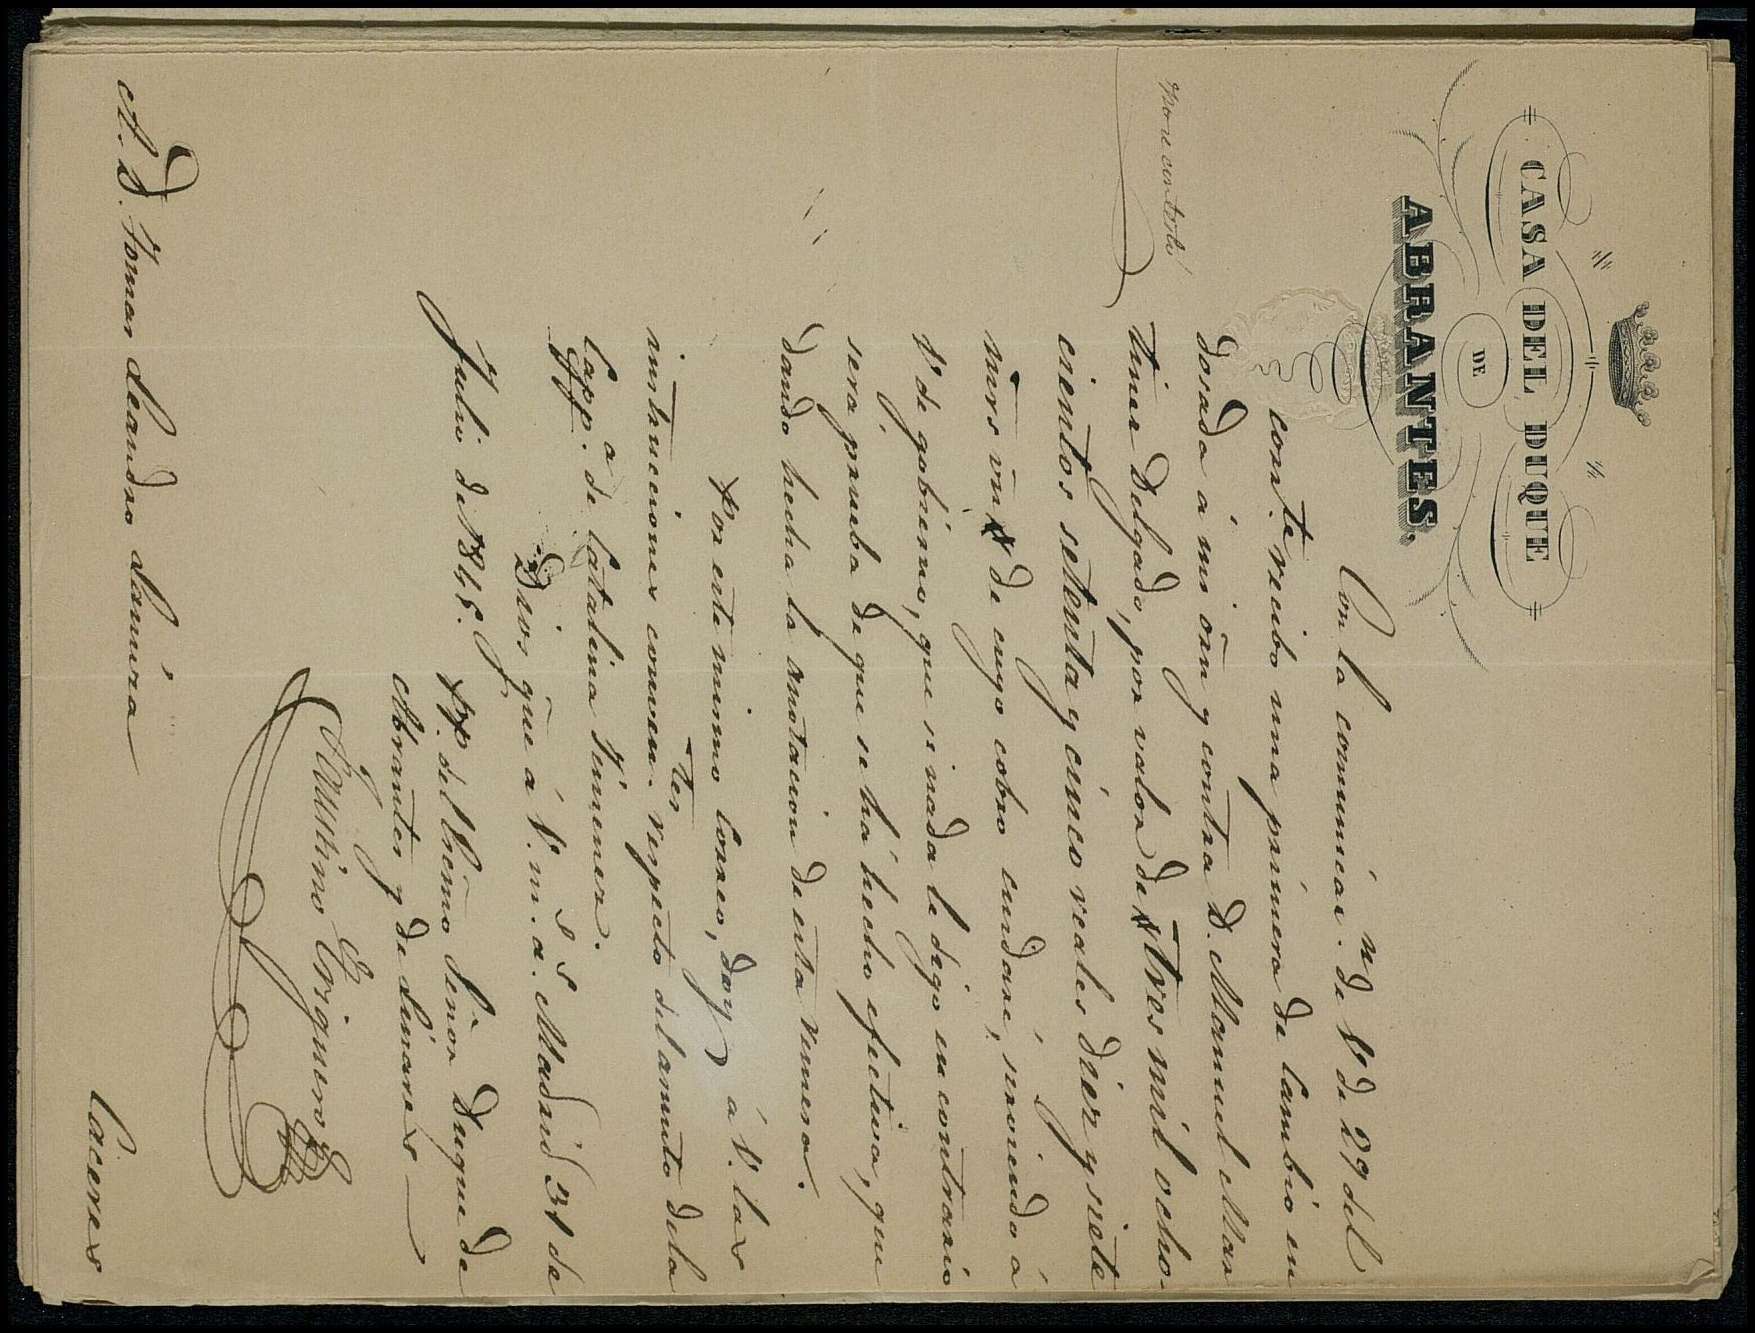 CASA DEL DUQUE
DE
ABRANTES.
Con la comunicac.n de V de 29 del
cor.te recibo una primera de Cambio en
dosada á mi òrn y contra D. Manuel Mar
tinez Delgado, por valor de tres mil ocho-
cientos setenta y cinco reales diez y siete
mrs vn de cuyo cobro cuidaré, sirviendo á
V de gobierno, que si nada le digo en contrario
será prueba de que se há hecho efectiva, que
dando hecha la anotacion de esta remesa.
Por este mismo Correo, doy á V. las
instrucciones conven.tes respecto del asunto dela
Capp.a de Catalina Ximenez.
Dios gûe á V. m. a.s Madrid 31 de
Julio de 1845.
P.P. del Excmo Señor Duque de
Abrantes y de Linares
Faustino Eziguren
A. D. Tomas Leandro Lanuza
Caceres